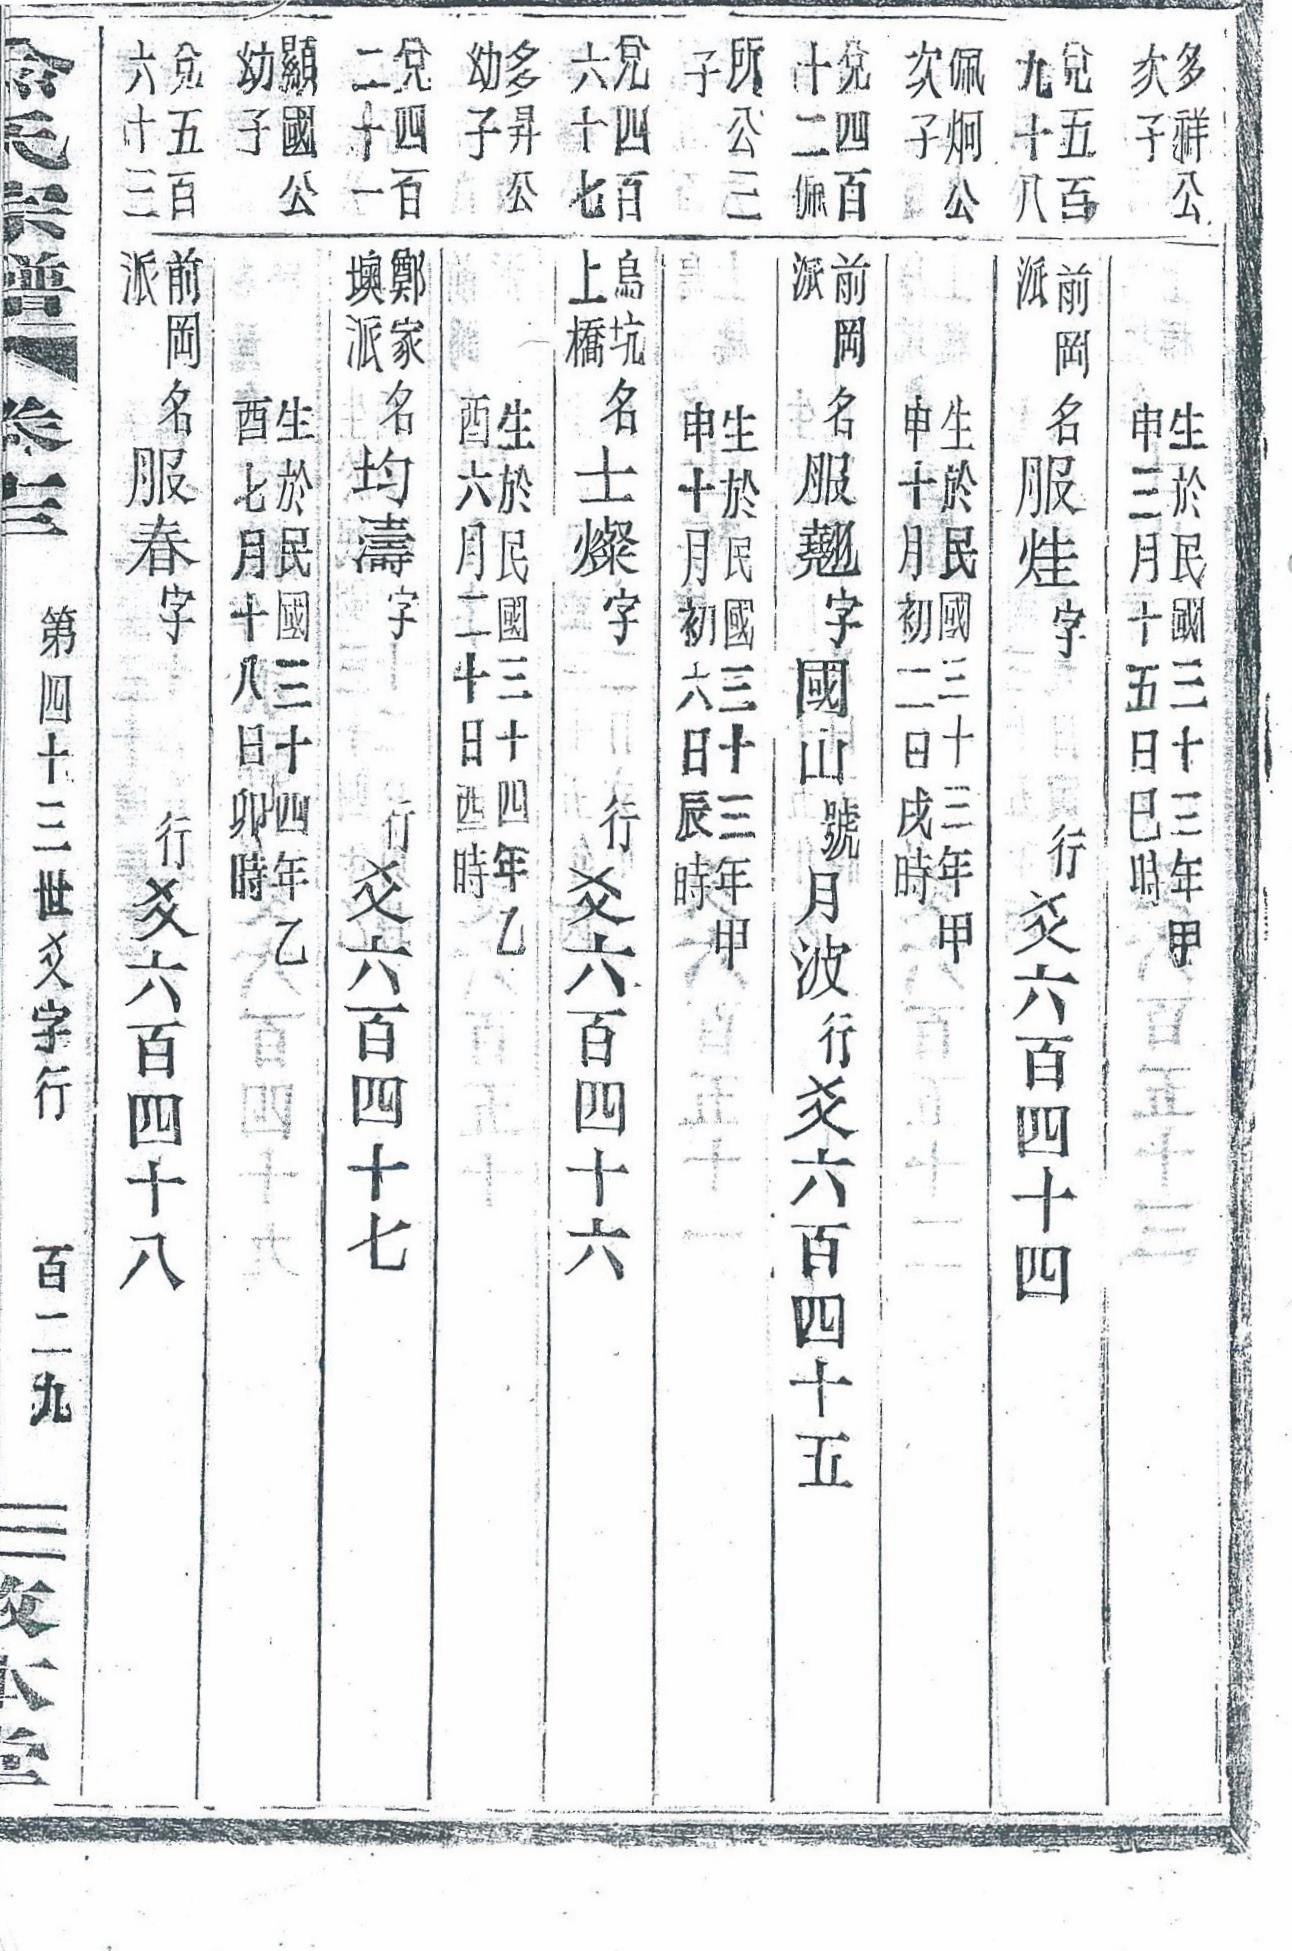 多祥公
次子
生於民國三十三年甲
申三月十五日巳時
兌五百
九十八
前岡
派
名服烓字 行爻六百四十四
佩炯公
次子
生於民國三十三年甲
申十月初二日戌時
兌四百
十二佩
前岡
派
名服翹字國山號月波行爻六百四十五
所公三
子
生於民國三十三年甲
申十月初六日辰時
兌四百
六十七
烏坑
上橋
名士燦字 行爻六百四十六
多昇公
幼子
生於民國三十四年乙
酉六月二十日酉時
兌四百
二十一
鄭家
墺派
名均濤字 行爻六百四十七
顯國公
幼子
生於民國三十四年乙
酉七月十八日卯時
兌五百
六十三
前岡
派
名服春字 行爻六百四十八
氏宗譜 卷三 第四十三世爻字行 百二九 敘本堂